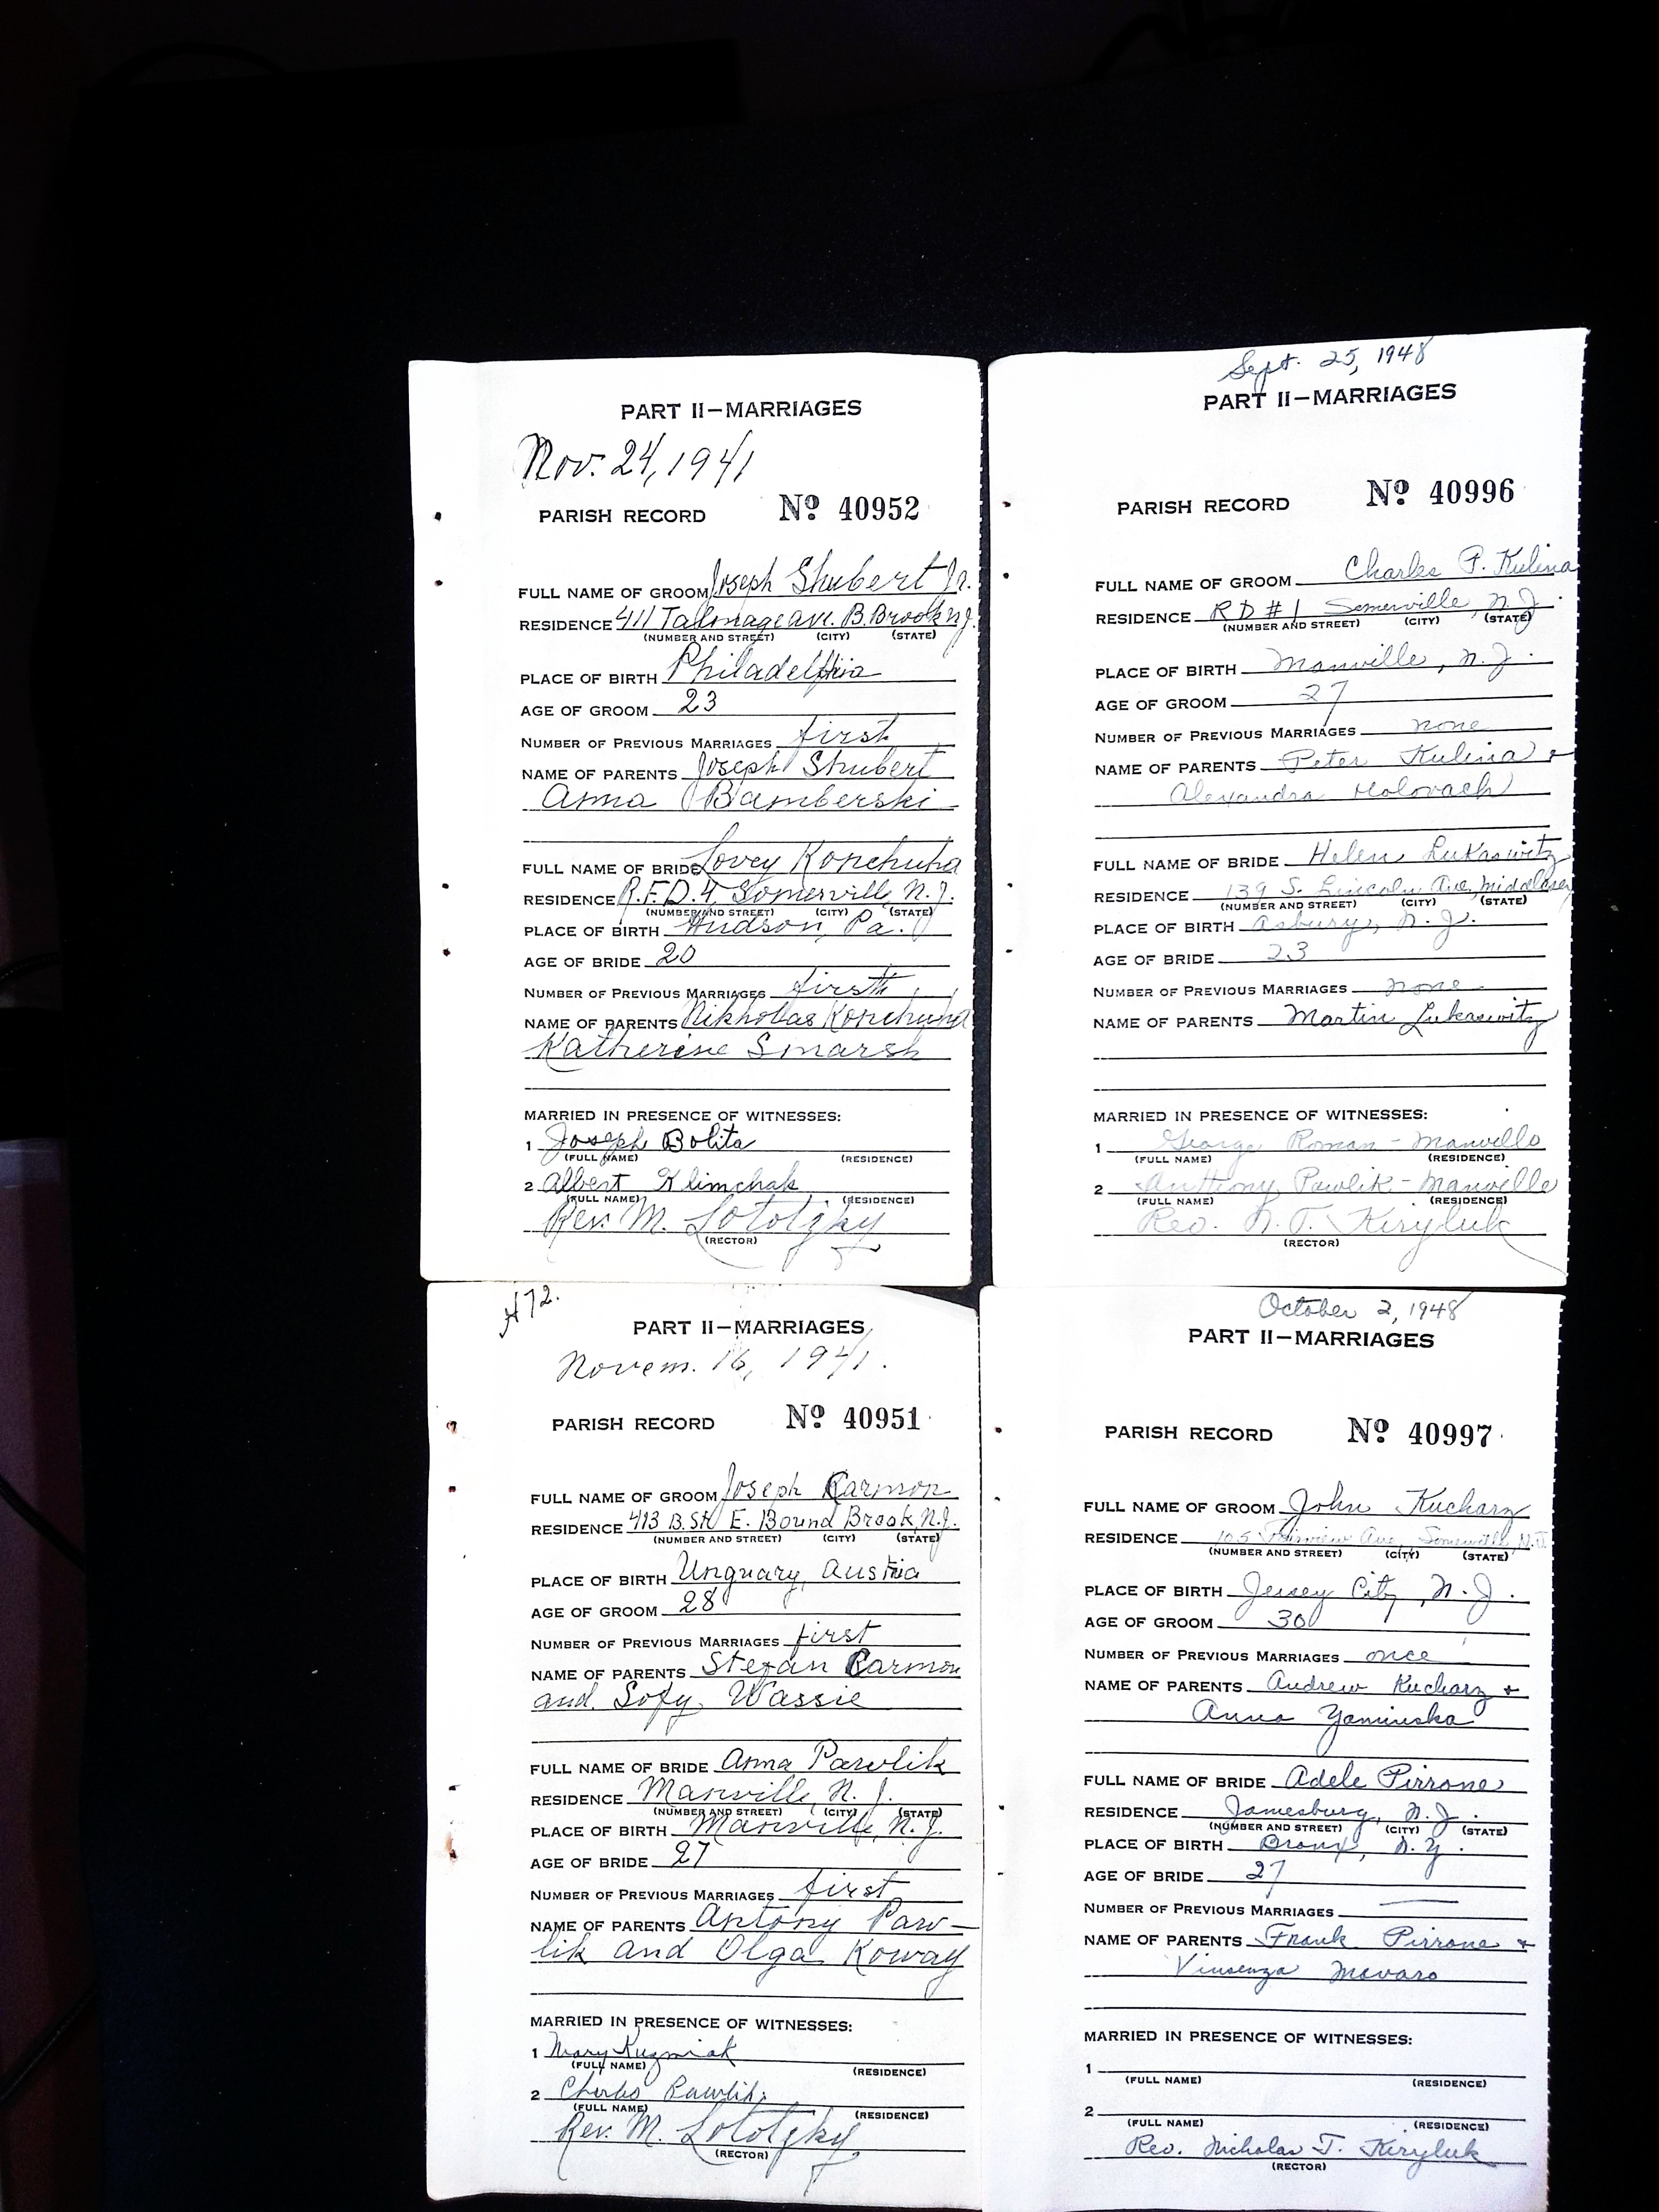 PART II—MARRIAGES
Nov. 24, 1941
PARISH RECORD No 40952
FULL NAME OF GROOM Joseph Shubert Jr.
RESIDENCE 411 Talmage ave. B. Brook N.J.
(NUMBER AND STREET) (CITY) (STATE)
PLACE OF BIRTH Philadelphia
AGE OF GROOM 23
NUMBER OF PREVIOUS MARRIAGES first
NAME OF PARENTS Joseph Shubert
Anna Bamberski
FULL NAME OF BRIDE Lovey Konchuha
RESIDENCE R.F.D. 4, Somerville, N.J.
(NUMBER AND STREET) (CITY) (STATE)
PLACE OF BIRTH Hudson, Pa.
AGE OF BRIDE 20
NUMBER OF PREVIOUS MARRIAGES first
NAME OF PARENTS Nikholas Konchuha
Katherine Smarsh
MARRIED IN PRESENCE OF WITNESSES:
1 Joseph Bolita
(FULL NAME) (RESIDENCE)
2 Albert Klimchak
(FULL NAME) (RESIDENCE)
Rev. M. Lototzky
(RECTOR)
Sept. 25, 1948
PART II—MARRIAGES
PARISH RECORD No 40996
FULL NAME OF GROOM Charles P. Kulina
RESIDENCE RD #1 Somerville, N.J.
(NUMBER AND STREET) (CITY) (STATE)
PLACE OF BIRTH Manville, N.J.
AGE OF GROOM 27
NUMBER OF PREVIOUS MARRIAGES none
NAME OF PARENTS Peter Kulina +
Alexandra Holovach
FULL NAME OF BRIDE Helen Lukaswitz
RESIDENCE 139 S. Lincoln Ave, Middlesex
(NUMBER AND STREET) (CITY) (STATE)
PLACE OF BIRTH Asbury, N.J.
AGE OF BRIDE 23
NUMBER OF PREVIOUS MARRIAGES none
NAME OF PARENTS Martin Lukaswitz
MARRIED IN PRESENCE OF WITNESSES:
1 George Roman - Manville
(FULL NAME) (RESIDENCE)
2 Anthony Pawlik - Manville
(FULL NAME) (RESIDENCE)
Rev. N. T. Kiryluk
(RECTOR)
H72.
PART II—MARRIAGES
Novem. 16, 1941.
PARISH RECORD No 40951
FULL NAME OF GROOM Joseph Carmon
RESIDENCE 413 B. St. E. Bound Brook, N.J.
(NUMBER AND STREET) (CITY) (STATE)
PLACE OF BIRTH Unguary, Austria
AGE OF GROOM 28
NUMBER OF PREVIOUS MARRIAGES first
NAME OF PARENTS Stefan Carmon
and Sofy Wassie
FULL NAME OF BRIDE Anna Pawlik
RESIDENCE Manville, N. J.
(NUMBER AND STREET) (CITY) (STATE)
PLACE OF BIRTH Manville, N.J.
AGE OF BRIDE 27
NUMBER OF PREVIOUS MARRIAGES first
NAME OF PARENTS Antony Paw-
lik and Olga Koway
MARRIED IN PRESENCE OF WITNESSES:
1 Mary Kuzniak
(FULL NAME) (RESIDENCE)
2 Pawlik
(FULL NAME) (RESIDENCE)
Rev. M. Lototzky
(RECTOR)
October 2, 1948
PART II—MARRIAGES
PARISH RECORD No 40997
FULL NAME OF GROOM John Kucharz
RESIDENCE 105 Fairview Ave, Somerville, N.J.
(NUMBER AND STREET) (CITY) (STATE)
PLACE OF BIRTH Jersey City, N.J.
AGE OF GROOM 30
NUMBER OF PREVIOUS MARRIAGES once
NAME OF PARENTS Andrew Kucharz +
Anna Yaminska
FULL NAME OF BRIDE Adele Pirrone
RESIDENCE Jamesburg, N.J.
(NUMBER AND STREET) (CITY) (STATE)
PLACE OF BIRTH Bronx, N.Y.
AGE OF BRIDE 27
NUMBER OF PREVIOUS MARRIAGES —
NAME OF PARENTS Frank Pirrone +
Vinsenza Movaro
MARRIED IN PRESENCE OF WITNESSES:
1
(FULL NAME) (RESIDENCE)
2
(FULL NAME) (RESIDENCE)
Rev. Nicholas T. Kiryluk
(RECTOR)